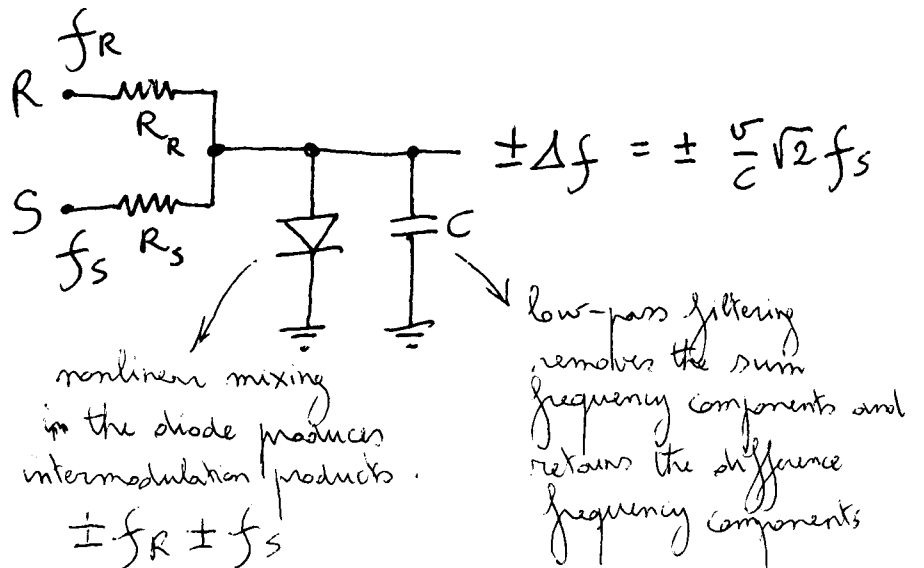 f_R
R
R_R
± Δf = ± v/c √2 f_s
S
f_s
R_s
C
nonlinear mixing
in the diode produces
intermodulation products.
± f_R ± f_s
low-pass filtering
removes the sum
frequency components and
retains the difference
frequency components